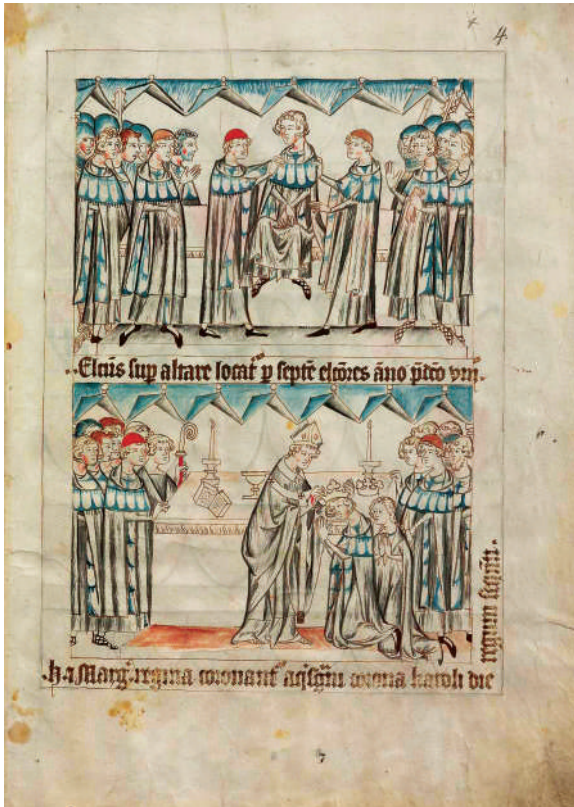 4
Elcūs sup altare locat̄ p septē elcōres āno p̄dc̄o viii.
.h. ⁊ Marg̾. regina coronant̄ aqisg̾ni corona karoli die
regum seq̄nti.